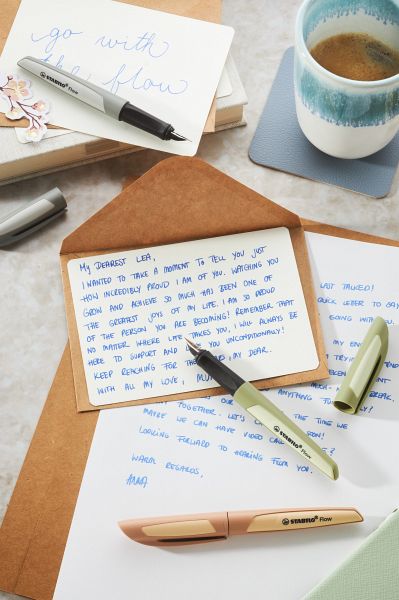 go with
the flow
STABILO Flow
MY DEAREST LEA,
I WANTED TO TAKE A MOMENT TO TELL YOU JUST
HOW INCREDIBLY PROUD I AM OF YOU. WATCHING YOU
GROW AND ACHIEVE SO MUCH HAS BEEN ONE OF
THE GREATEST JOYS OF MY LIFE. I AM SO PROUD
OF THE PERSON YOU ARE BECOMING! REMEMBER THAT
NO MATTER WHERE LIFE TAKES YOU, I WILL ALWAYS BE
HERE TO SUPPORT AND YOU UNCONDITIONALLY!
KEEP REACHING FOR THE , MY DEAR.
WITH ALL MY LOVE,
LAST TALKED!
QUICK LETTER TO SAY
GOING WITH
MY
TRYING
MUCH BREAK.
ANYTHING
TOGETHER. THE TIME WE
MAYBE WE CAN HAVE VIDEO
LOOKING FORWARD TO HEARING FROM YOU.
WARM REGARDS,
ANNA
STABILO Flow
STABILO Flow